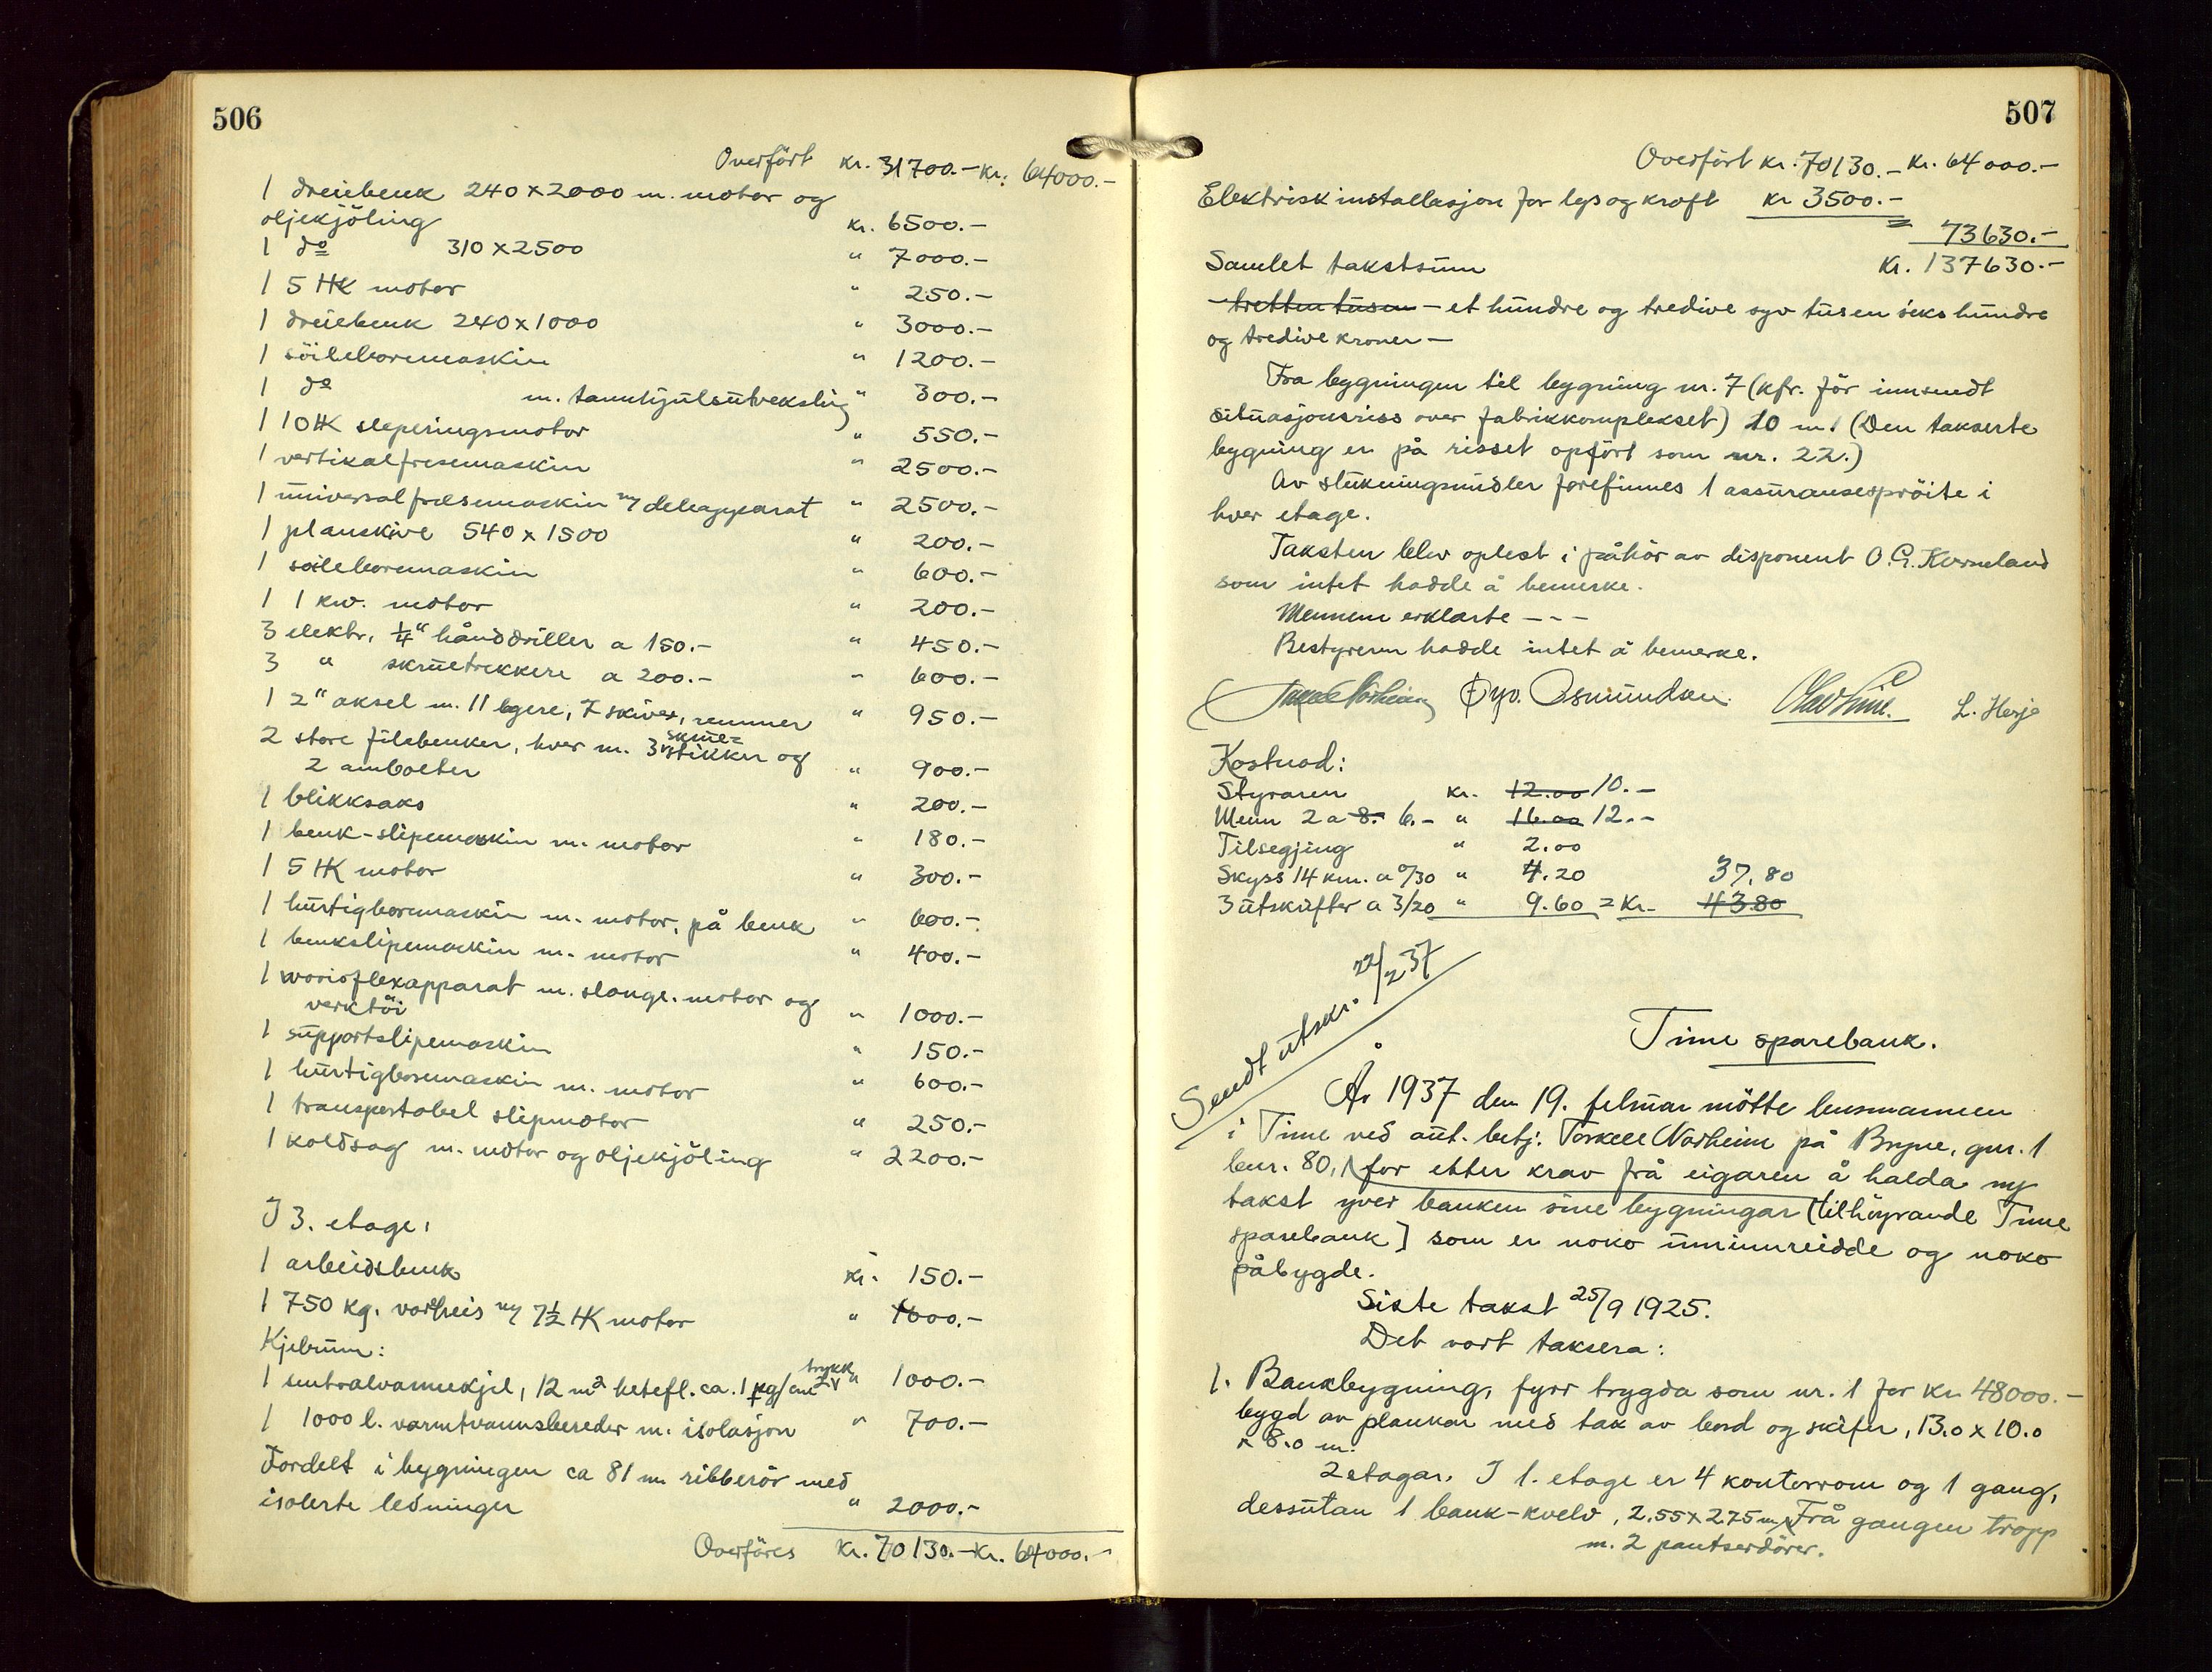 506
Overført kr. 31700.- kr. 64000.-
1 dreiebenk 240 x 2000 m. motor og
oljekjöling kr. 6500.-
1 do 310 x 2500 " 7000.-
1 5 HK motor " 250.-
1 dreiebenk 240 x 1000 " 3000.-
1 söileboremaskin " 1200.-
1 do m. tannhjulsutveksling " 300.-
1 10 HK sleperingsmotor " 550.-
1 vertikalfresemaskin " 2500.-
1 universalfresemaskin m/ deleapparat " 2500.-
1 planskive 540 x 1500 " 200.-
1 söileboremaskin " 600.-
1 1 kw. motor " 200.-
3 elektr. 1/4" hånddriller a 150.- " 450.-
3 " skruetrekkere a 200.- " 600.-
1 2" aksel m. 11 lagere, 7 skiver, remmer " 950.-
2 store filebenker, hver m. 3 skrue=stikker og
2 ambolter " 900.-
1 blikksaks " 200.-
1 benk-slipemaskin m. motor " 180.-
1 5 HK motor " 300.-
1 hurtigboremaskin m. motor, på benk " 600.-
1 benkslipemaskin m. motor " 400.-
1 varioflexapparat m. slange, motor og
verktöi " 1000.-
1 supportslipemaskin " 150.-
1 hurtigboremaskin m. motor " 600.-
1 transportabel slipmotor " 250.-
1 koldsag m. motor og oljekjöling " 2200.-
I 3. etage:
1 arbeidsbenk kr. 150.-
1 750 kg. vareheis m/ 7½ HK motor " 1600.-
Kjelrum:
1 sentralvarmekjel, 12 m² hetefl. ca. 1 kg/cm² trykk " 1000.-
1 1000 l. varmtvannsbereder m. isolasjon " 700.-
Fordelt i bygningen ca 81 m ribberör med
isolerte ledninger " 2000.-
Overföres kr. 70130.- kr. 64000.-
507
Overfört kr. 70130.- kr. 64000.-
Elektrisk installasjon for lys og kraft kr 3500.-
= 73630.-
Samlet takstsum kr. 137630.-
- tretten tusen - et hundre og tredive syv tusen seks hundre
og tredive kroner -
Fra bygningen til bygning nr. 7 (kfr. för innsendt
situasjonsriss over fabrikkomplekset) 10 m. (Den takserte
bygning er på risset opfört som nr. 22.)
Av slukningsmidler forefinnes 1 assuransespröite i
hver etage.
Taksten blev oplest i påhör av disponent O. G. Kverneland
som intet hadde å bemerke.
Mennene erklærte - - -
Bestyreren hadde intet å bemerke.
Torkell Norheim Øyv. Osmundsen. Olav Lima. L. Herje
Kostnad:
Styraren kr. 12.00 10.-
Menn 2 a 8.- 6.- " 16.00 12.-
Tilsegjing " 2.00
Skyss 14 km. a 0/30 " 4.20 37,80
3 utskrifter a 3/20 " 9.60 = kr. 43.80
Sendt utskr. 22/2 37
Time sparebank.
År 1937 den 19. februar mötte lensmannen
i Time ved aut. betj. Torkell Norheim på Bryne, gnr. 1
bnr. 80, for etter krav frå eigaren å halda ny
takst yver banken sine bygningar (tilhöyrande Time
sparebank] som er noko uminnreidde og noko
påbygde.
Siste takst 25/9 1925.
Det vart taksera:
1. Bankbygning, fyrr trygda som nr. 1 for kr 48000.-
bygd av plankar med tak av bord og skifer, 13.0 x 10.0
x 8.0 m.
2 etagar. I 1. etage er 4 kontorrom og 1 gang,
dessutan 1 bank-kvelv, 2.55 x 2.75 m. Frå gangen tropp
m. 2 pantserdörer.